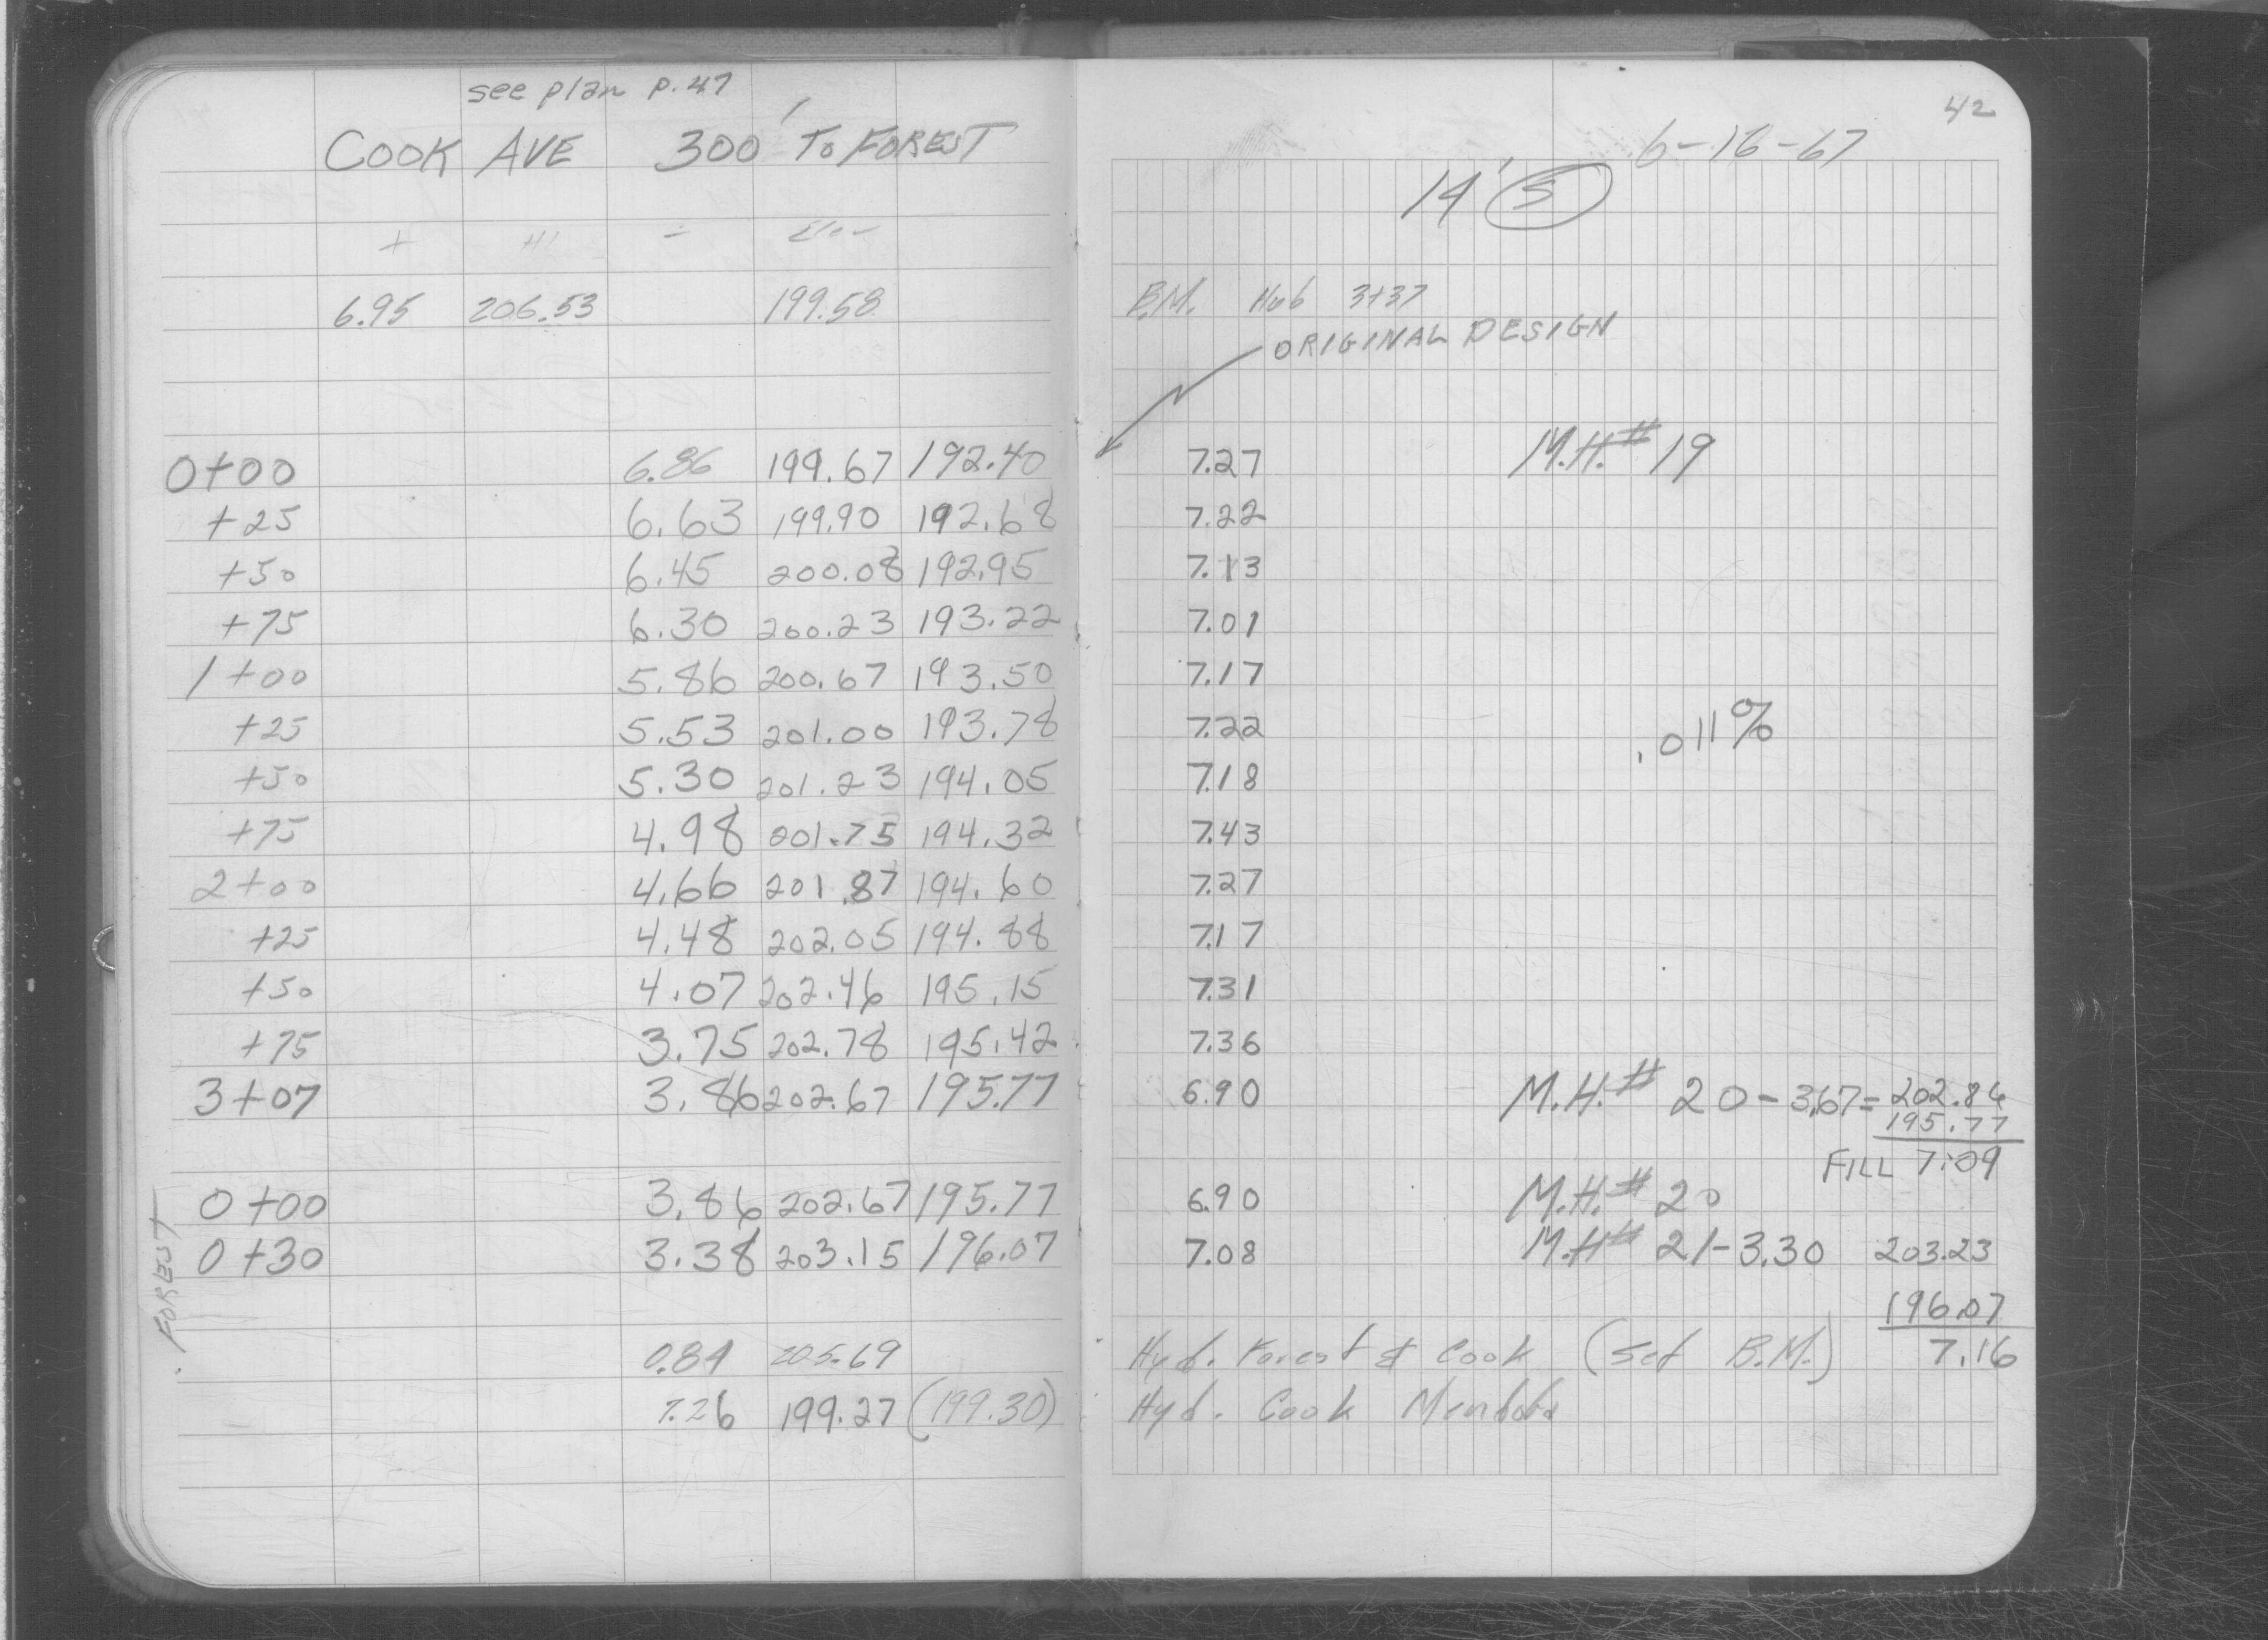 see plan p. 47
COOK AVE 300' To FOREST
+ HI - Elev
6.95 206.53 199.58
0+00 6.86 199.67 192.40
+25 6.63 199.90 192.68
+50 6.45 200.08 192.95
+75 6.30 200.23 193.22
1+00 5.86 200.67 193.50
+25 5.53 201.00 193.78
+50 5.30 201.23 194.05
+75 4.98 201.75 194.32
2+00 4.66 201.87 194.60
+25 4.48 202.05 194.88
+50 4.07 202.46 195.15
+75 3.75 202.78 195.42
3+07 3.86 202.67 195.77
0+00 3.86 202.67 195.77
0+30 3.38 203.15 196.07
FOREST
0.84 205.69
7.26 199.27 (199.30)
42
6-16-67
14' S
B.M. Hub 3+37
ORIGINAL DESIGN
7.27 M.H.# 19
7.22
7.13
7.01
7.17
7.22
.011%
7.18
7.43
7.27
7.17
7.31
7.36
6.90 M.H.# 20-3.67=202.86
195.77
FILL 7.09
6.90 M.H.# 20
7.08 M.H# 21-3.30 203.23
196.07
7.16
Hyd. Forest & Cook (Set B.M.)
Hyd. Cook Mendota